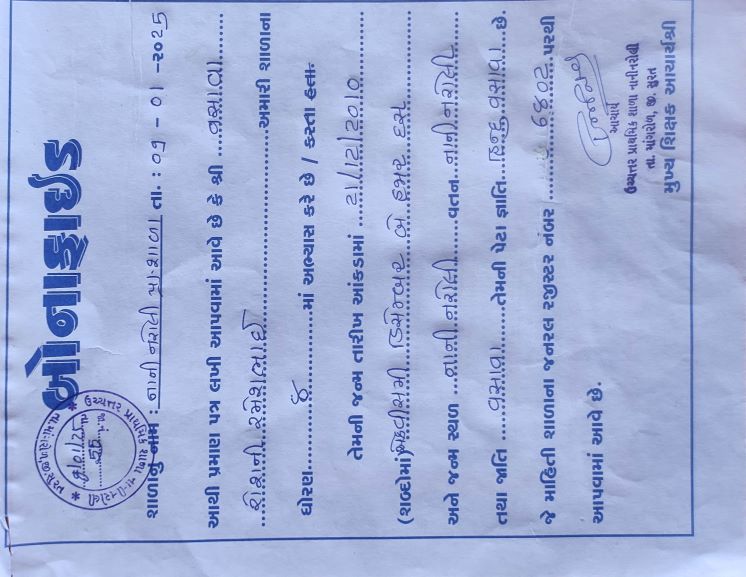 બોનાફાઈડ
શાળાનું નામ : નાની નરોલી પ્રા.શાળા તા. : ૦૧ - ૦૧ -૨૦૨૫
આથી પ્રમાણ પત્ર લખી આપવામાં આવે છે કે શ્રી ....વસાવા.......
રમેશભાઈ.......................અમારી શાળાના
ધોરણ.........૪..........માં અભ્યાસ કરે છે / કરતા હતા.
તેમની જન્મ તારીખ આંકડામાં ....૨૧/૧૨/૨૦૧૦......
(શબ્દોમાં) એકવીસમી ડિસેમ્બર બે હજાર દસ
અને જન્મ સ્થળ ...નાની નરોલી.......વતન...નાની નરોલી....
તથા જાતિ ......વસાવા......તેમની પેટા જ્ઞાતિ...હિન્દુ વસાવા...છે.
જે માહિતી શાળાના જનરલ રજીસ્ટર નંબર .......૬૪૦૨....પરથી
આપવામાં આવે છે.
આચાર્ય
ઉચ્ચત્તર પ્રાથમિક શાળા નાનીનરોલી
તા. માંગરોળ, જી. સુરત
મુખ્ય શિક્ષક આચાર્યશ્રી